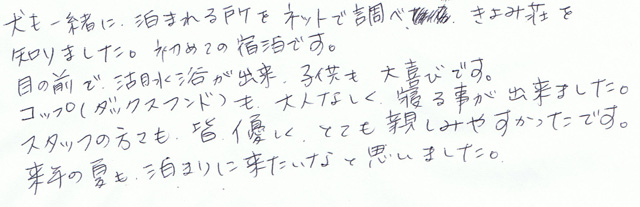 犬も一緒に、泊まれる所をネットで調べ、きよみ荘を
知りました。初めての宿泊です。
目の前で、海水浴が出来、子供も大喜びです。
コップ(ダックスフンド)も、大人なしく、寝る事が出来ました。
スタッフの方ても、皆、優しく、とても親しみやすかったです。
来年の夏も、泊まりに来たいなと思いました。